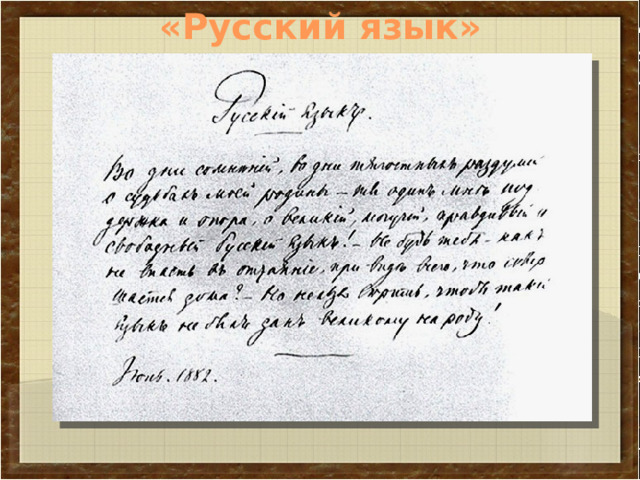 «Русский язык»
Русскій Языкъ.
Во дни сомнѣній, во дни тягостныхъ раздумій
о судьбахъ моей родины – ты одинъ мнѣ под
держка и опора, о великій, могучій, правдивый и
свободный Русскій Языкъ! – Не будь тебя – какъ
не впасть въ отчаяніе, при видѣ всего, что совер
шается дома? – Но нельзя вѣрить, чтобы такой
языкъ не былъ данъ великому народу!
Июнь. 1882.